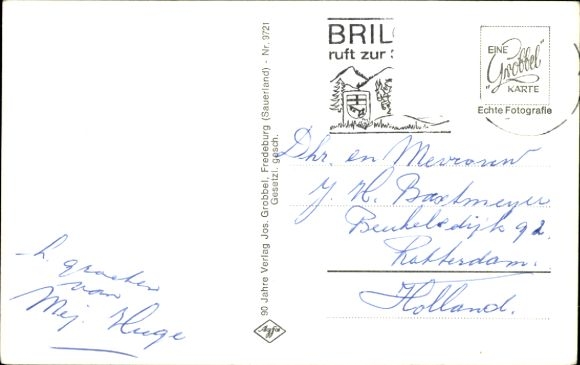 BRIL
ruft zur
EINE
"Grobbel"
KARTE
Echte Fotografie
90 Jahre Verlag Jos. Grobbel, Fredeburg (Sauerland) - Nr. 9721
Gesetzl. gesch.
Agfa
Dhr. en Mevrouw
J. H. Bastmeyer
Beukelsdijk 92.
Rotterdam.
Holland.
h. groeten
van
Mej. Huge